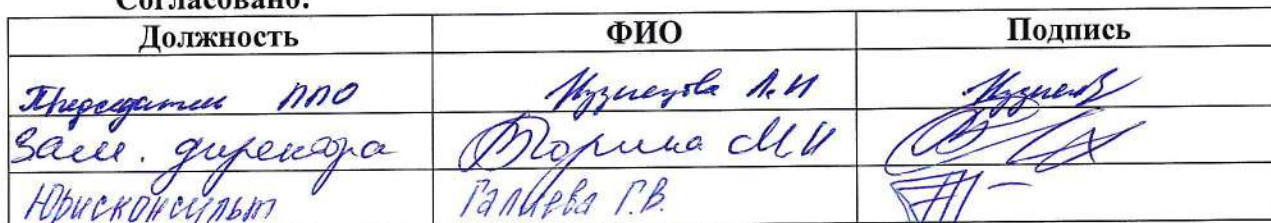 Согласовано:
Должность ФИО Подпись
Председатель ППО Кузнецова Л.И
Зам. директора М И
Юрисконсульт Галиева Г.В.